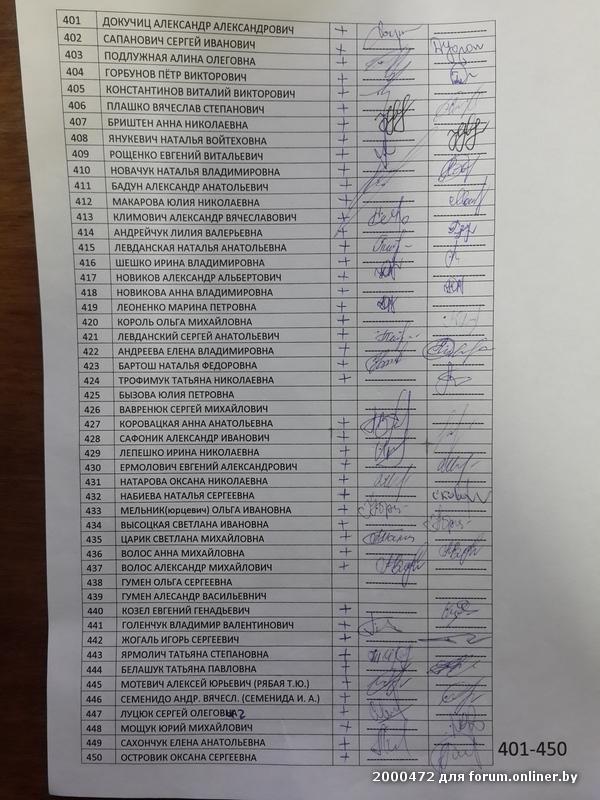 401 ДОКУЧИЦ АЛЕКСАНДР АЛЕКСАНДРОВИЧ +
402 САПАНОВИЧ СЕРГЕЙ ИВАНОВИЧ +
403 ПОДЛУЖНАЯ АЛИНА ОЛЕГОВНА +
404 ГОРБУНОВ ПЁТР ВИКТОРОВИЧ +
405 КОНСТАНТИНОВ ВИТАЛИЙ ВИКТОРОВИЧ +
406 ПЛАШКО ВЯЧЕСЛАВ СТЕПАНОВИЧ +
407 БРИШТЕН АННА НИКОЛАЕВНА +
408 ЯНУКЕВИЧ НАТАЛЬЯ ВОЙТЕХОВНА +
409 РОЩЕНКО ЕВГЕНИЙ ВИТАЛЬЕВИЧ +
410 НОВАЧУК НАТАЛЬЯ ВЛАДИМИРОВНА +
411 БАДУН АЛЕКСАНДР АНАТОЛЬЕВИЧ +
412 МАКАРОВА ЮЛИЯ НИКОЛАЕВНА +
413 КЛИМОВИЧ АЛЕКСАНДР ВЯЧЕСЛАВОВИЧ +
414 АНДРЕЙЧУК ЛИЛИЯ ВАЛЕРЬЕВНА +
415 ЛЕВДАНСКАЯ НАТАЛЬЯ АНАТОЛЬЕВНА +
416 ШЕШКО ИРИНА ВЛАДИМИРОВНА +
417 НОВИКОВ АЛЕКСАНДР АЛЬБЕРТОВИЧ +
418 НОВИКОВА АННА ВЛАДИМИРОВНА +
419 ЛЕОНЕНКО МАРИНА ПЕТРОВНА +
420 КОРОЛЬ ОЛЬГА МИХАЙЛОВНА +
421 ЛЕВДАНСКИЙ СЕРГЕЙ АНАТОЛЬЕВИЧ +
422 АНДРЕЕВА ЕЛЕНА ВЛАДИМИРОВНА +
423 БАРТОШ НАТАЛЬЯ ФЕДОРОВНА +
424 ТРОФИМУК ТАТЬЯНА НИКОЛАЕВНА +
425 БЫЗОВА ЮЛИЯ ПЕТРОВНА
426 ВАВРЕНЮК СЕРГЕЙ МИХАЙЛОВИЧ
427 КОРОВАЦКАЯ АННА АНАТОЛЬЕВНА +
428 САФОНИК АЛЕКСАНДР ИВАНОВИЧ +
429 ЛЕПЕШКО ИРИНА НИКОЛАЕВНА +
430 ЕРМОЛОВИЧ ЕВГЕНИЙ АЛЕКСАНДРОВИЧ +
431 НАТАРОВА ОКСАНА НИКОЛАЕВНА +
432 НАБИЕВА НАТАЛЬЯ СЕРГЕЕВНА +
433 МЕЛЬНИК(юрцевич) ОЛЬГА ИВАНОВНА +
434 ВЫСОЦКАЯ СВЕТЛАНА ИВАНОВНА +
435 ЦАРИК СВЕТЛАНА МИХАЙЛОВНА +
436 ВОЛОС АННА МИХАЙЛОВНА +
437 ВОЛОС АЛЕКСАНДР МИХАЙЛОВИЧ +
438 ГУМЕН ОЛЬГА СЕРГЕЕВНА
439 ГУМЕН АЛЕСАНДР ВАСИЛЬЕВНИЧ
440 КОЗЕЛ ЕВГЕНИЙ ГЕНАДЬЕВИЧ +
441 ГОЛЕНЧУК ВЛАДИМИР ВАЛЕНТИНОВИЧ +
442 ЖОГАЛЬ ИГОРЬ СЕРГЕЕВИЧ +
443 ЯРМОЛИЧ ТАТЬЯНА СТЕПАНОВНА +
444 БЕЛАШУК ТАТЬЯНА ПАВЛОВНА +
445 МОТЕВИЧ АЛЕКСЕЙ ЮРЬЕВИЧ (РЯБАЯ Т.Ю.) +
446 СЕМЕНИДО АНДР. ВЯЧЕСЛ. (СЕМЕНИДА И. А.) +
447 ЛУЦЮК СЕРГЕЙ +
448 МОЩУК ЮРИЙ МИХАЙЛОВИЧ +
449 САХОНЧУК ЕЛЕНА АНАТОЛЬЕВНА +
450 ОСТРОВИК ОКСАНА СЕРГЕЕВНА +
401-450
2000472 для forum.onliner.by